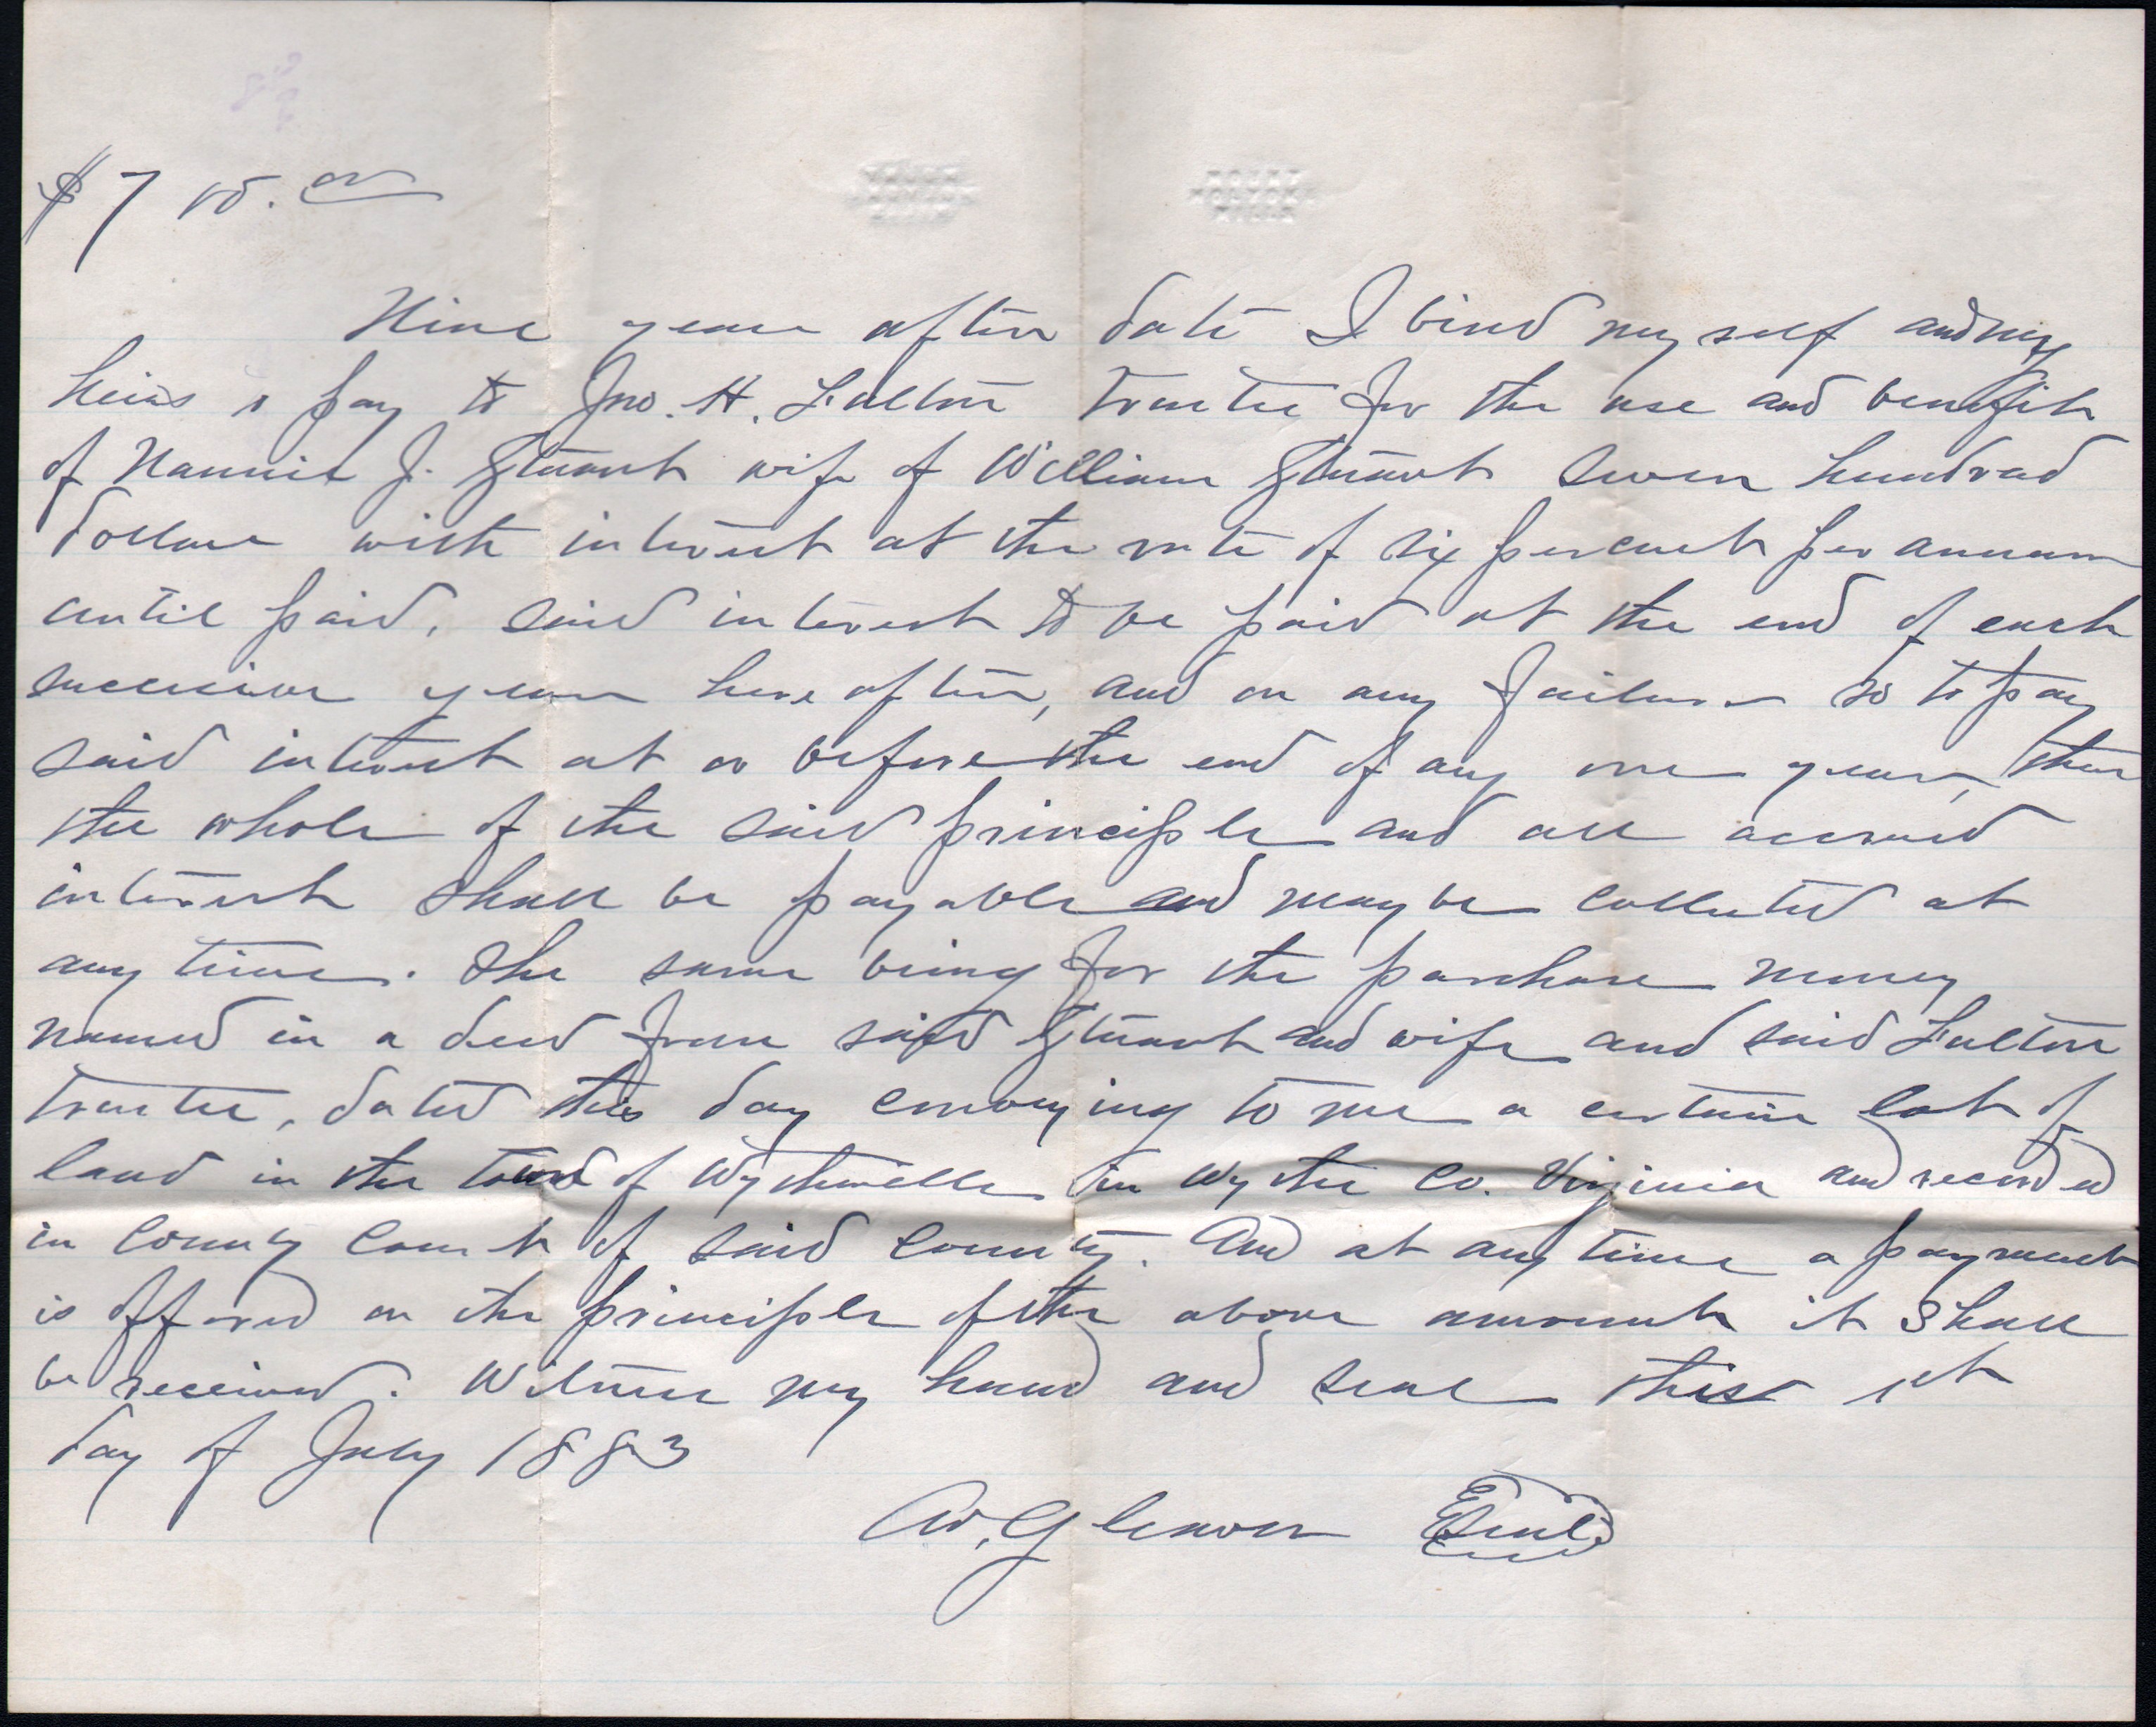 $700.00
MOUNT HOLYOKE MILLS
Nine years after date I bind myself and my
heirs to pay to Jno. H. Fulton trustee for the use and benefit
of Nannie J. Stuart wife of William Stuart seven hundred
dollars with interest at the rate of six per cent per annum
until paid, said interest to be paid at the end of each
successive year here after, and on any failure so to pay
said interest at or before the end of any one year, then
the whole of the said principle and all accrued
interest shall be payable and may be collected at
any time. The same being for the purchase money
named in a deed from said Stuart and wife and said Fulton
trustee, dated this day conveying to me a certain lot of
land in the town of Wytheville in Wythe Co. Virginia and recorded
in County Court of said County. And at any time a payment
is offered on the principle of the above amount it shall
be received. Witness my hand and seal this 1st
day of July 1883
W. Gleaves Seal